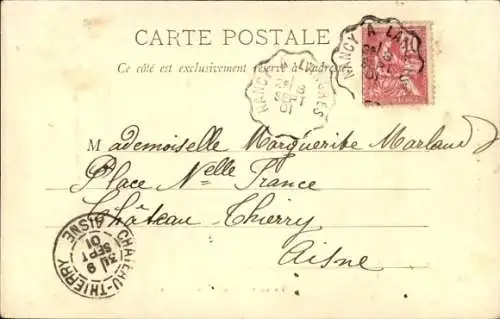 CARTE POSTALE
Ce côté est exclusivement réservé à l'adresse
NANCY A LANGRES
8
SEPT
01
NANCY A LA
10
Mademoiselle Marguerite Marland
Place Nelle France
Château-Thierry
Aisne
CHATEAU-THIERRY AISNE
9
SEPT
01